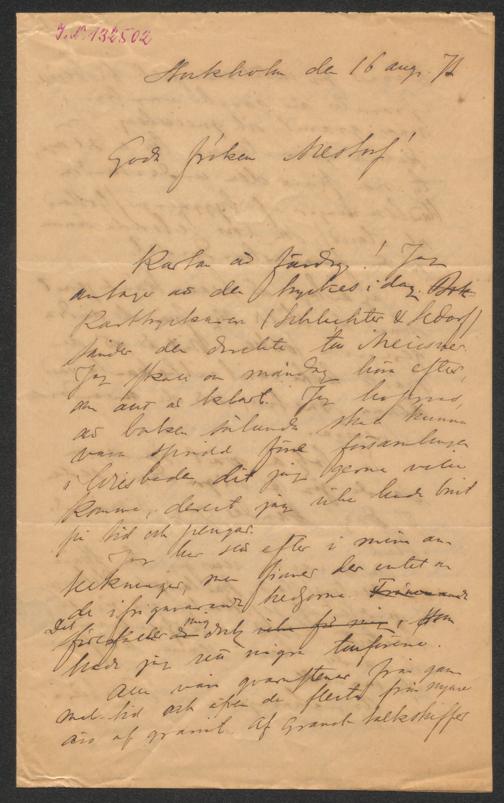 J. N° 132502
Stockholm den 16 aug. 73
Goda fröken Mestorf!
Kartan är färdig! Jag
antager att den tryckes i dag.
Karttryckaren (Schlachter & Sedorf)
sänder den direkte till Meissner.
Jag skall om måndag höra efter
om allt är klart. Jag hoppas,
att boken sålunda skall kunna
vara spridd före församlingen
i Wiesbaden, dit jag gerna ville
komma, derest jag icke hade brist
på tid och pengar.
Jag har sett efter i mina an-
teckningar, men finner der intet om
de ifrågavarande
Det förefaller mig dock, som
hade jag sett några
Alla våra från gam-
mal tid och äfven de flesta från nyare
äro af granit. Af